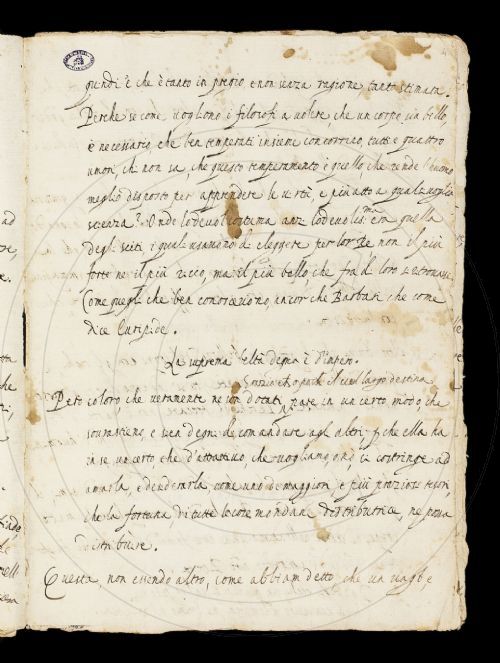 quindi è che è tanto in pregio, e non senza ragione tanto stimata.
Perche se come vogliono i filosofi a volere, che un corpo sia bello,
è necessario che ben temperati insieme concorrino, tutti e quattro
umori, chi non sa che questo temperamento è quello che rende l'huomo
meglio disposto per apprendere le virtù, e più atto a qual si voglia
scienza? Onde lodevol costuma anzi lodevolis.ma era quella
degli sciti i quali usavono d'eleggere per lor Re non il più
forte ne il più ricco, ma il più bello, che fra di loro si trovava,
Come quegli che ben conoscevono, ancor che Barbari che come
dice Euripide.
La suprema beltà degna è d'impero.
Grazia ch'a pochi il ciel largo destina
Però coloro che veramente ne son dotati pare in un certo modo che
sourastieno, e sien degni di comandare agl altri, p che ella ha
in se un certo che d'attrattivo, che vogliamo, o nò, ci costringe ad
amarla, e desiderarla come uno de maggiori, e più preziosi tesori,
che la fortuna di tutte le cose mondane distributrice, ne possa
distribuire.
Questa, non essendo altro, come abbiam detto che un vago, e